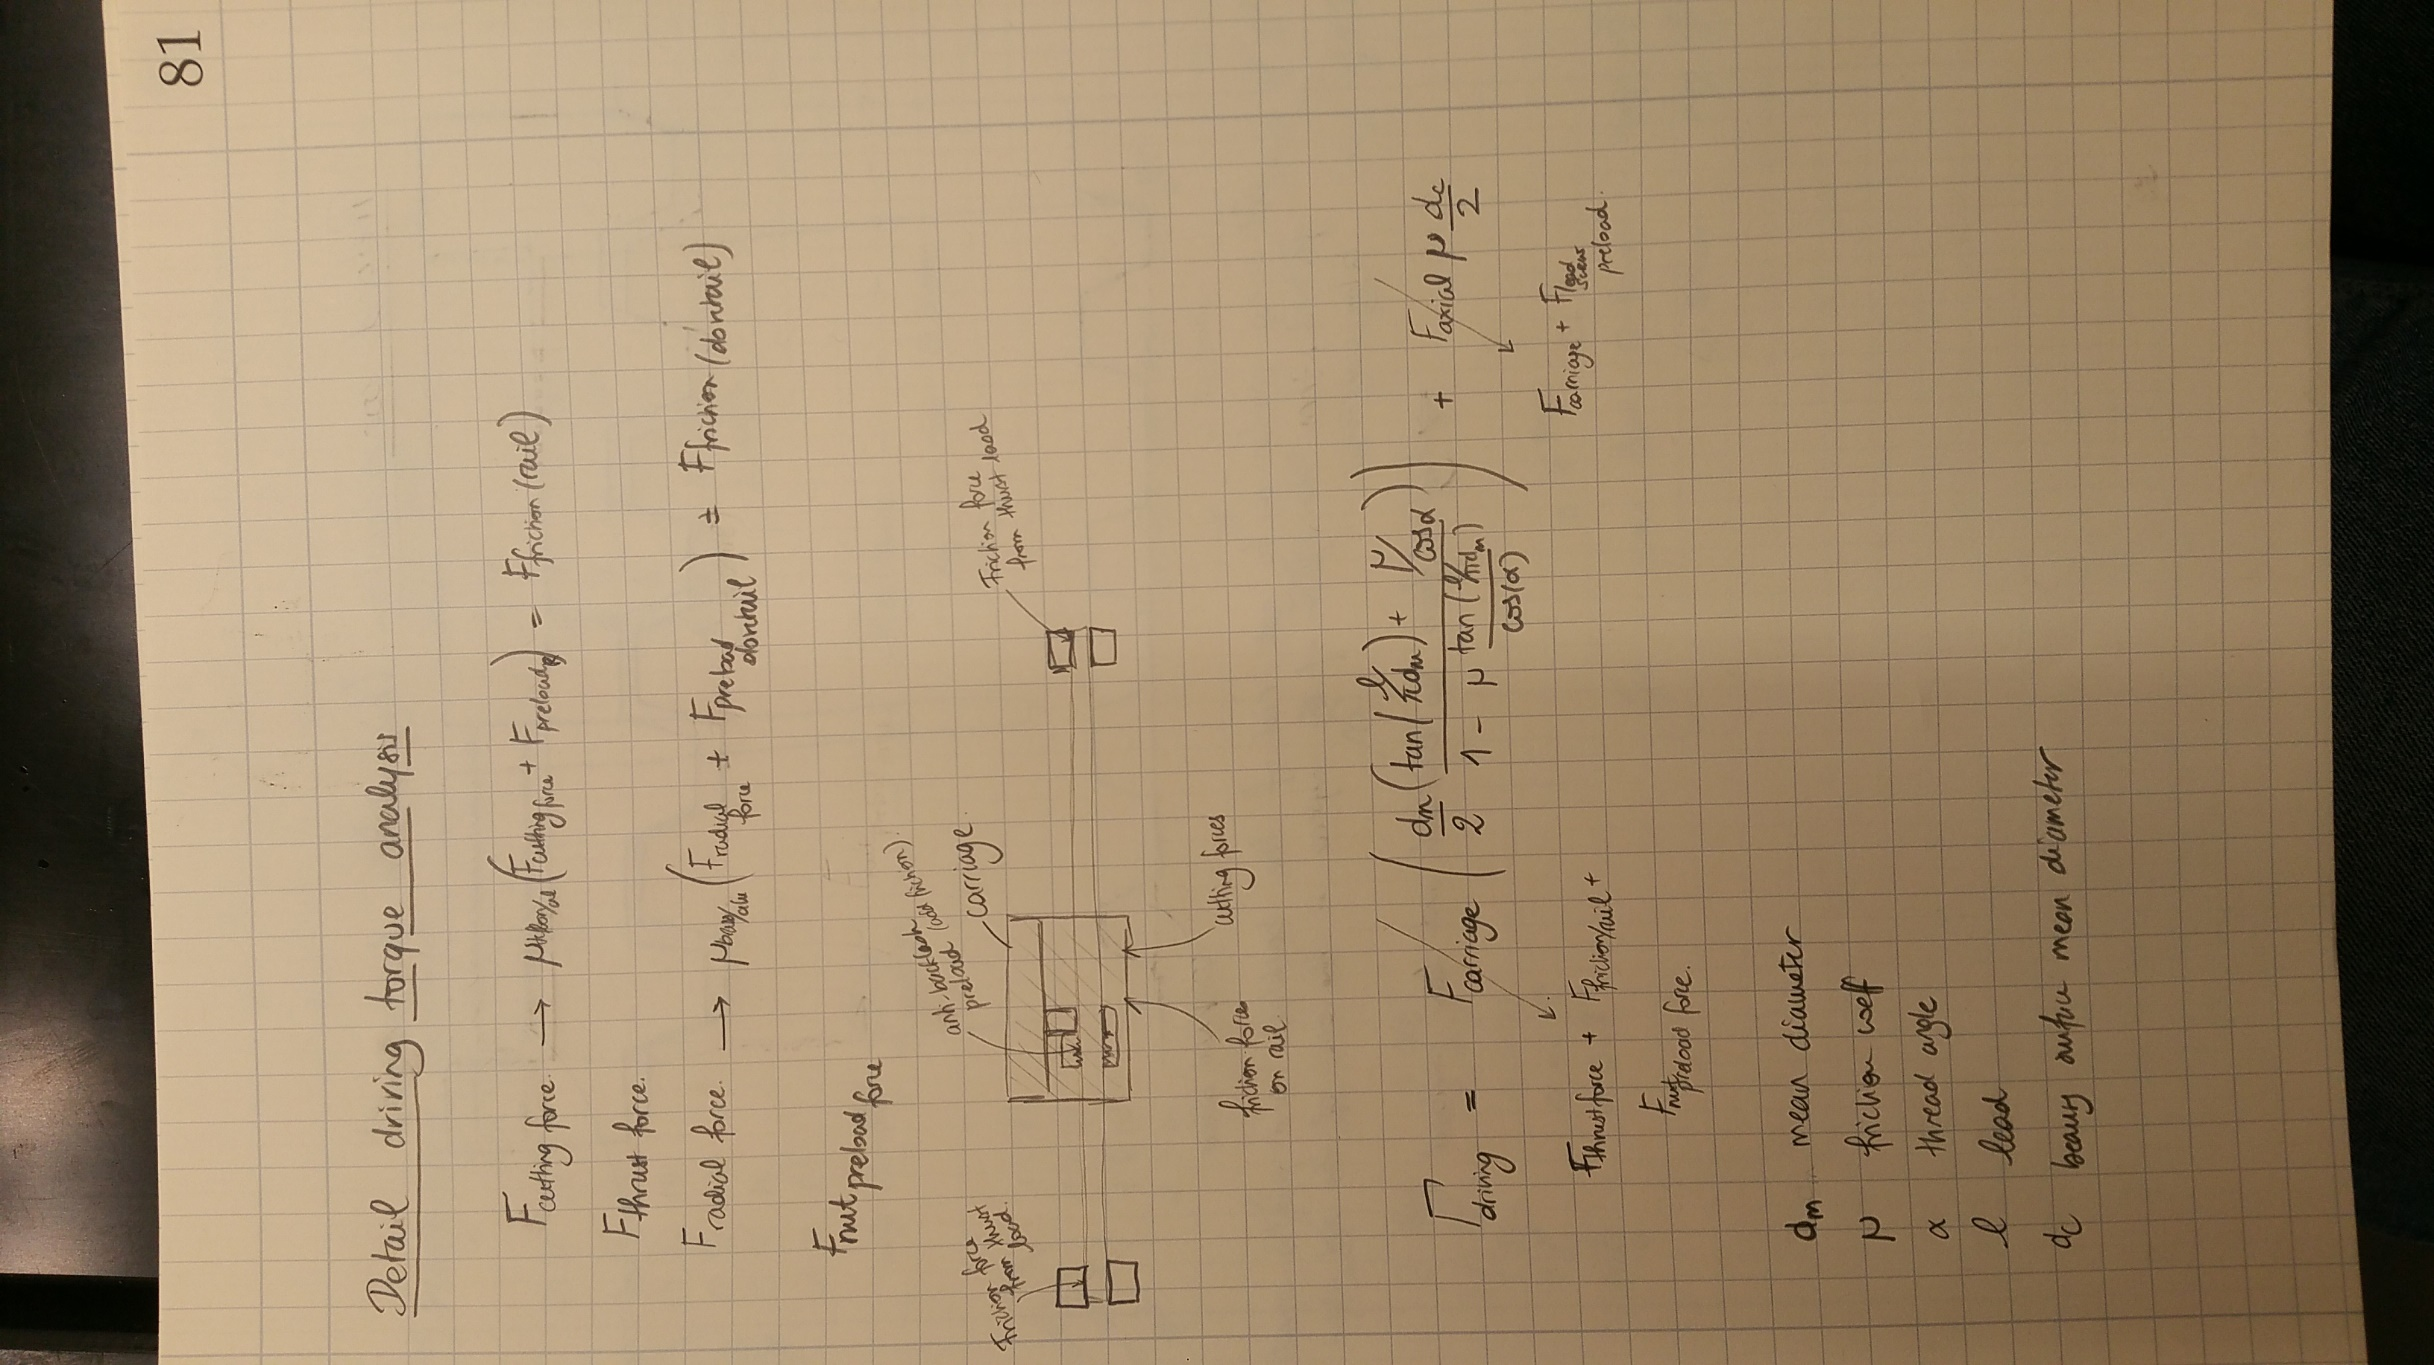 81
Detail driving torque analysis
F cutting force. → μ (F cutting force + F preload) = F friction (rail)
F thrust force.
F radial force. → μ (F radial force ± F preload dovtail) ± F friction (dovtail)
F nut preload force
anti-backlash preload (add friction)
carriage
Friction force from thrust load
Friction force from thrust load.
friction force on rail
cutting forces
Γ driving = F carriage ( dm/2 ( (tan(l/πdm) + μ/cosα) / (1 - μ tan(l/πdm)/cos(α)) ) ) + F axial μ dc/2
F thrust force + F friction/rail +
F nut preload force.
F carriage + F lead screw preload.
dm mean diameter
μ friction coeff
α thread angle
l lead
dc mean diameter